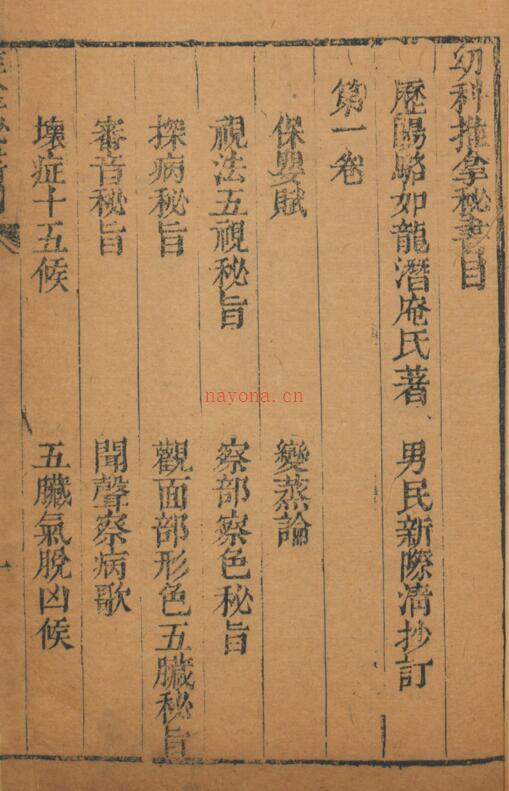 幼科推拿秘書目
歷陽駱如龍潛庵氏著 男民新際清抄訂
第一卷
保嬰賦 變蒸論
視法五視秘旨 察部察色秘旨
探病秘旨 觀面部形色五臟秘旨
審音秘旨 聞聲察病歌
壞症十五候 五臟氣脫凶候
nayona.cn